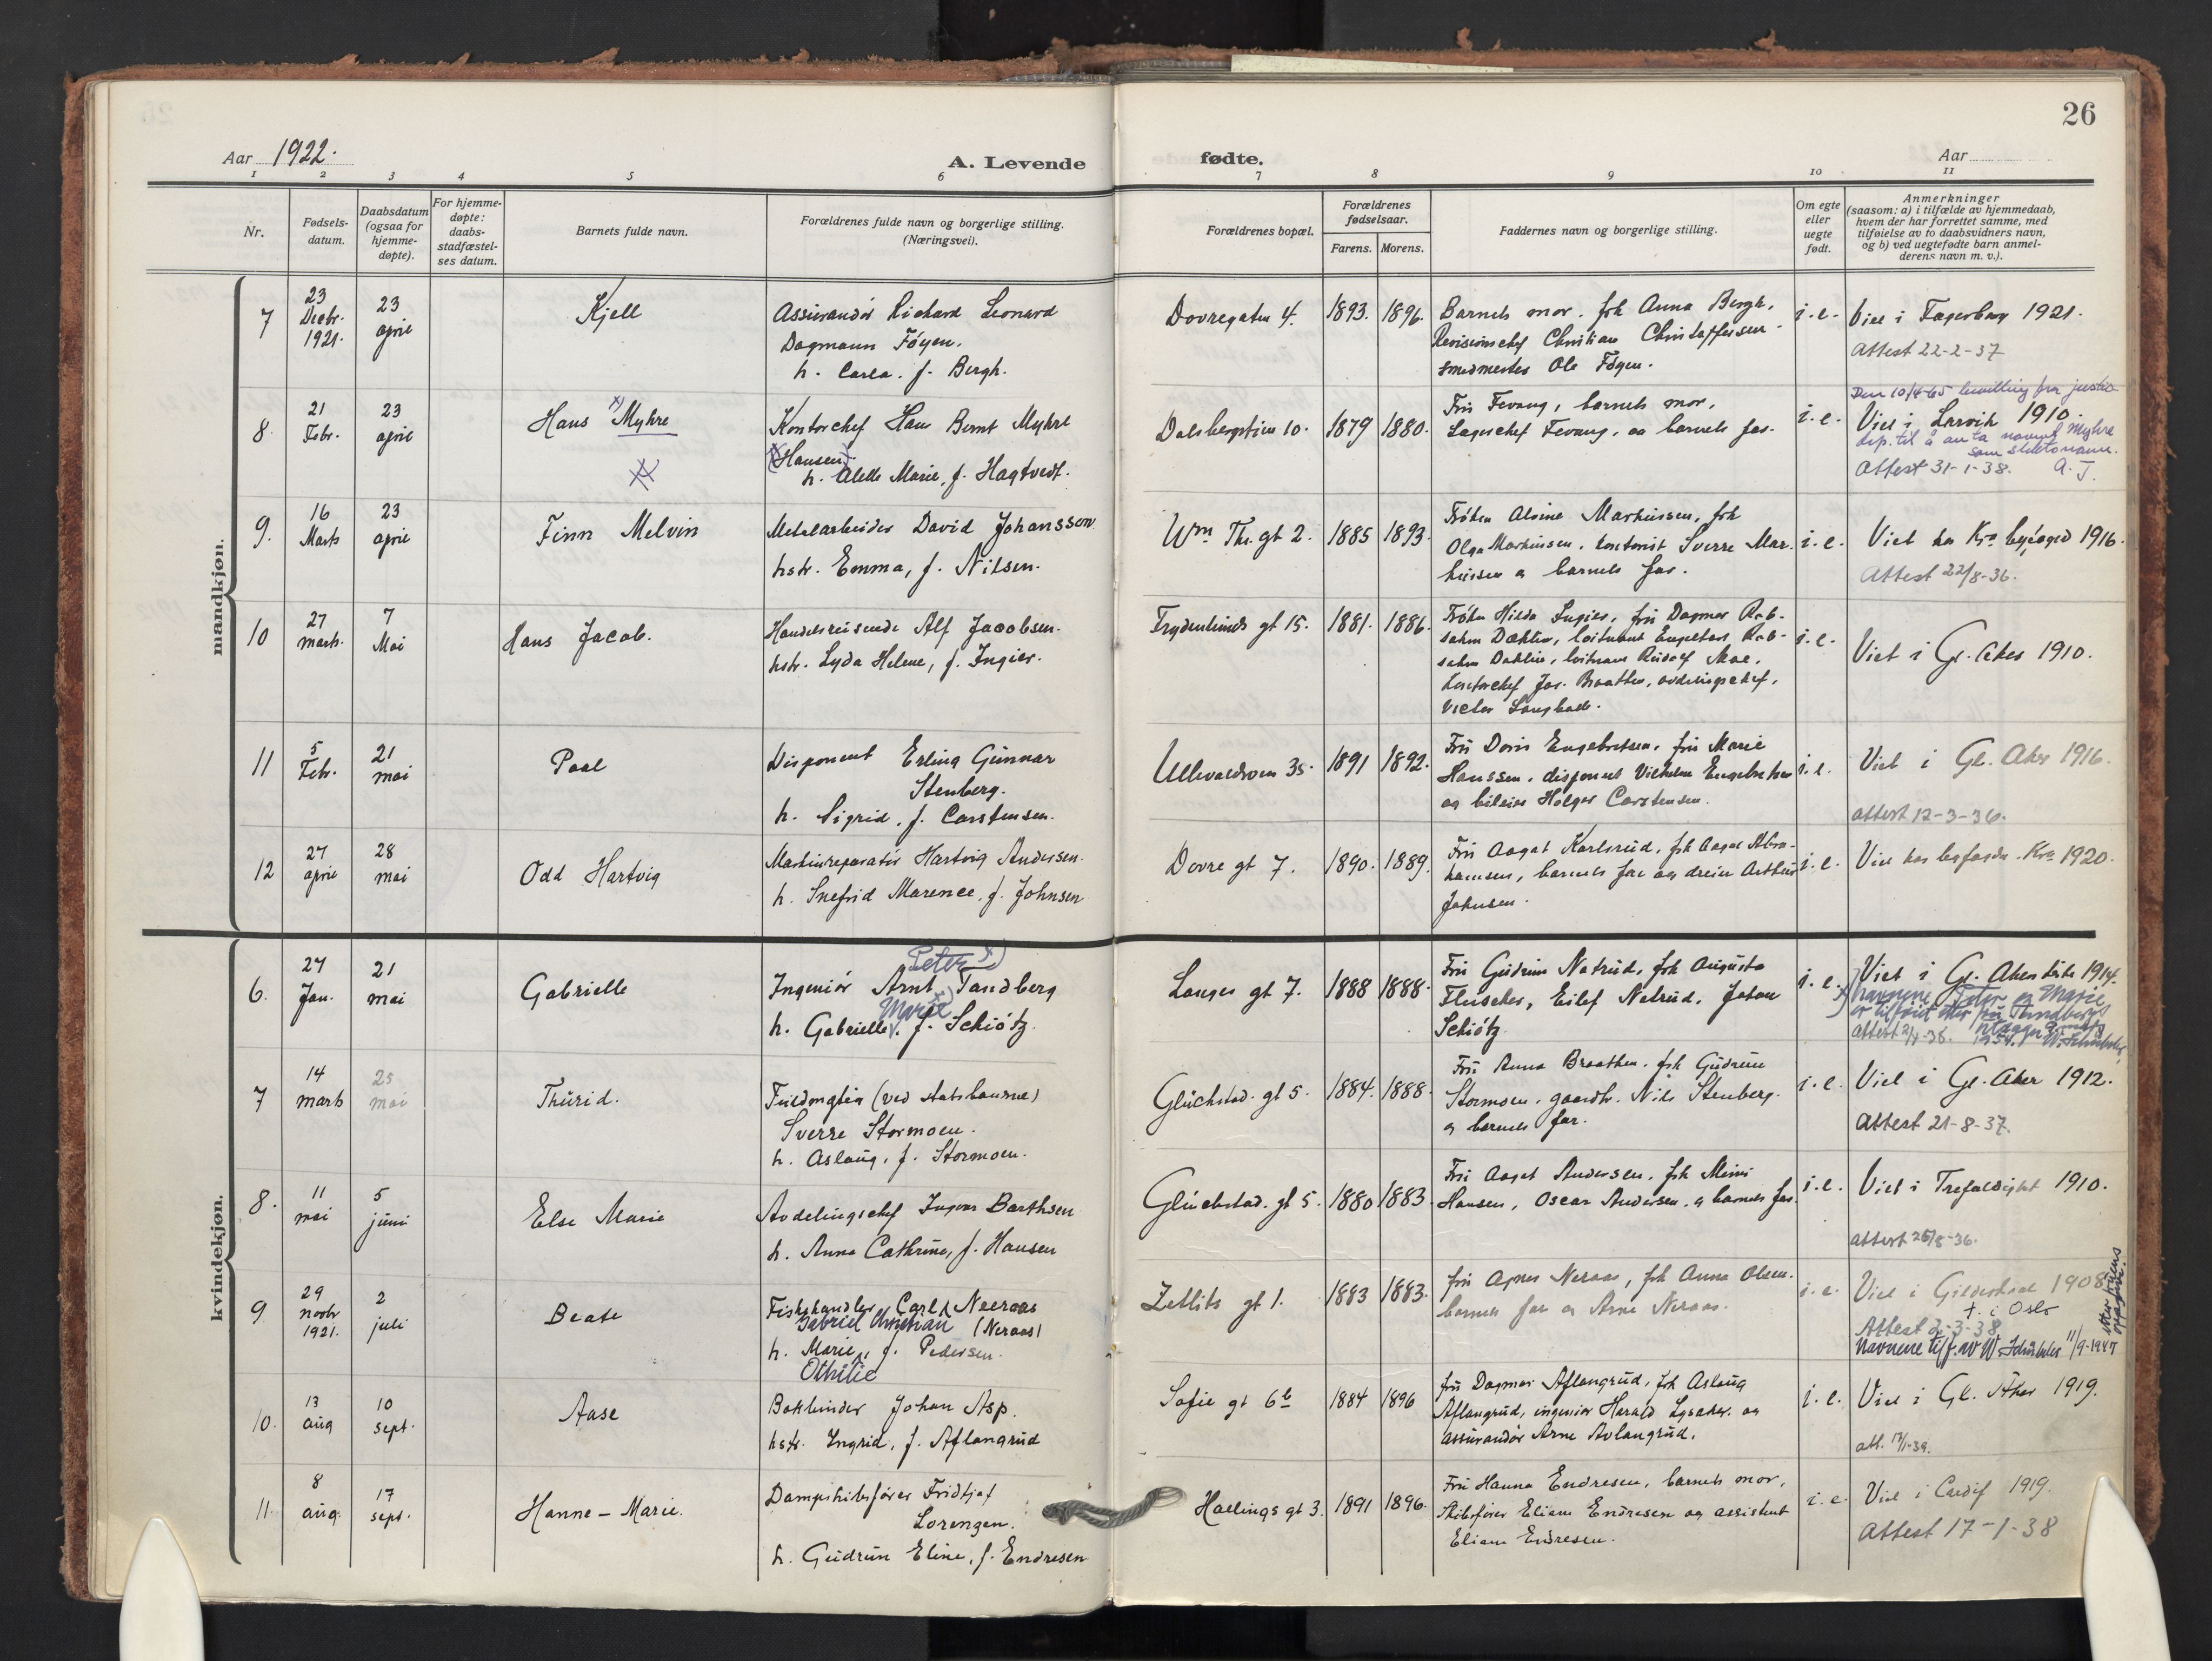 26
Aar 1922.
A. Levende
fødte.
Aar
1 2 3 4 5 6 7 8 9 10 11
Nr.
Fødsels-
datum.
Daabsdatum
(ogsaa for
hjemme-
døpte).
For hjemme-
døpte:
daabs-
stadfæstel-
ses datum.
Barnets fulde navn.
Forældrenes fulde navn og borgerlige stilling.
(Næringsvei).
Forældrenes bopæl.
Forældrenes
fødselsaar.
Farens. Morens.
Faddernes navn og borgerlige stilling.
Om egte
eller
uegte
født.
Anmerkninger
(saasom: a) i tilfælde av hjemmedaab,
hvem der har forrettet samme, med
tilføielse av to daabsvidners navn,
og b) ved uegtefødte barn anmel-
derens navn m. v.).
mandkjøn.
7
23
Decbr.
1921.
23
april
Kjell
Assurandør Richard Leonard
Dagmann Føyen.
h. Carla. f. Bergh.
Dovregaten 4.
1893. 1896.
Barnets mor. frk Anna Bergh.
Revisionschef Christian Christoffersen
smedmester Ole Føyen.
i. e.
Viet i Fagerborg 1921.
Attest 22-2-37
8
21
Febr.
23
april
Hans Myhre
Kontorchef Hans Bernt Myhre
Hansen
h. Alette Marie, f. Hagtvedt.
Dalsbergstien 10.
1879 1880.
Fru Fevang, barnets mor,
Lagerchef Fevang, og barnets far.
i. e.
Den 10/4-65 bevilling fra justis
Viet i Larvik 1910.
dep. til å anta navnet Myhre
som slektsnavn.
Attest 31-1-38. A. J.
9.
16
Marts
23
april
Finn Melvin
Metalarbeider David Johansson
hstr. Emma, f. Nilsen.
Wm Thr. gt 2.
1885 1893.
Frøken Alvine Markussen, frk
Olga Markussen, kontorist Sverre Mar-
kussen og barnets far.
i. e.
Viet hos Kra byfoged 1916.
Attest 22/8-36.
10
27
marts.
7
Mai
Hans Jacob.
Handelsreisende Alf Jacobsen.
hstr. Lyda Helene, f. Ingier.
Frydenlunds gt 15.
1881. 1886.
Frøken Hilda Ingier, fru Dagmar Rob-
sahm Dahlin, loitnant Engelhart Rob-
sahm Dahlin, loitnant Rudolf Moe,
kontorchef Jac. Braathen, avdelingschef,
Victor
i. e.
Viet i Gl. Aker 1910.
11
5
Febr.
21
mai
Paal
Disponent Erling Gunnar
Stenberg.
h. Sigrid. f. Carstensen.
Ullevaldsveien 35.
1891 1892.
Fru Doris Engebretsen, fru Marie
Hanssen, disponent Vilhelm Engebretsen
og bileier Holger Carstensen.
i. e.
Viet i Gl. Aker 1916.
attest 12-3-36.
12
27
april
28
mai
Odd Hartvig
Maskinreparatør Hartvig Andersen.
h. Snefrid Marence. f. Johnsen
Dovre gt 7.
1890. 1889.
Fru Aagot Karlsrud, frk Aagot Abra-
hamsen, barnets far og dreier Arthur
Johnsen.
i. e.
Viet hos byfogden. Kra 1920.
kvindekjøn.
6.
27
Jan.
21
mai
Gabrielle
Peter x)
Ingeniør Arnt Tandberg
Marie x)
h. Gabrielle. f. Schiötz.
Langes gt 7.
1888 1888.
Fru Gudrun Natrud, frk Augusta
Fleischer, Eilef Natrud, Johan
Schiötz
i. e.
Viet i Gl. Akers kirke 1914.
x) navnene Peter og Marie
er tilføiet etter
attest 2/4-36. 1954.
7
14
marts
25
mai
Thurid.
Fuldmægtig (ved statsbanerne)
Sverre Stormoen.
h. Aslaug, f. Stormoen.
Glückstad. gt 5.
1884. 1888.
Fru Anna Braathen. frk Gudrun
Stormoen, gaardbr. Nils Stenberg.
og barnets far.
i. e.
Viet i Gl. Aker 1912.
Attest 21-8-37.
8.
11
mai
5
juni
Else Marie
Avdelingschef Ingvar Barthsen
h. Anna Cathrine, f. Hansen
Glückstad. gt 5.
1880 1883.
Fru Aagot Andersen, frk Mimi
Hansen, Oscar Andersen, og barnets far.
i. e.
Viet i Trefoldighet 1910.
attest 25/8-36.
9
29
novbr
1921.
2
juli
Beate
Fiskehandler Carl Neeraas
Gabriel Christian (Neraas)
h. Marie, f. Pedersen.
Othilie
Zetlitz gt 1.
1883 1883.
fru Agnes Neraas, frk Anna Olsen.
barnets far og Arne Neraas.
i. e.
Viet i Gildeskaal 1908
+ i Oslo
Attest 2-3-38
Navnene tilf. 11/9-1947
10.
13
aug
10
sept.
Aase
Bokbinder Johan Asp.
hstr. Ingrid, f. Aflangrud
Sofie gt 6b
1884 1896
fru Dagmar Aflangrud, frk Aslaug
Aflangrud, ingeniør Harald Lysaker. og
assurandør Arne Avlangrud.
i. e.
Viet i Gl. Aker 1919.
att. 13/1-39.
11.
8
aug.
17
sept.
Hanne-Marie.
Dampskibsfører Fridtjof
Lorenzen.
h. Gudrun Eline, f. Endresen
Hallings gt 3.
1891 1896.
Fru Hanna Endresen, barnets mor,
Skibsfører Eliam Endresen og assistent
Eliam Endresen.
i. e.
Viet i Cardif 1919.
Attest 17-1-38